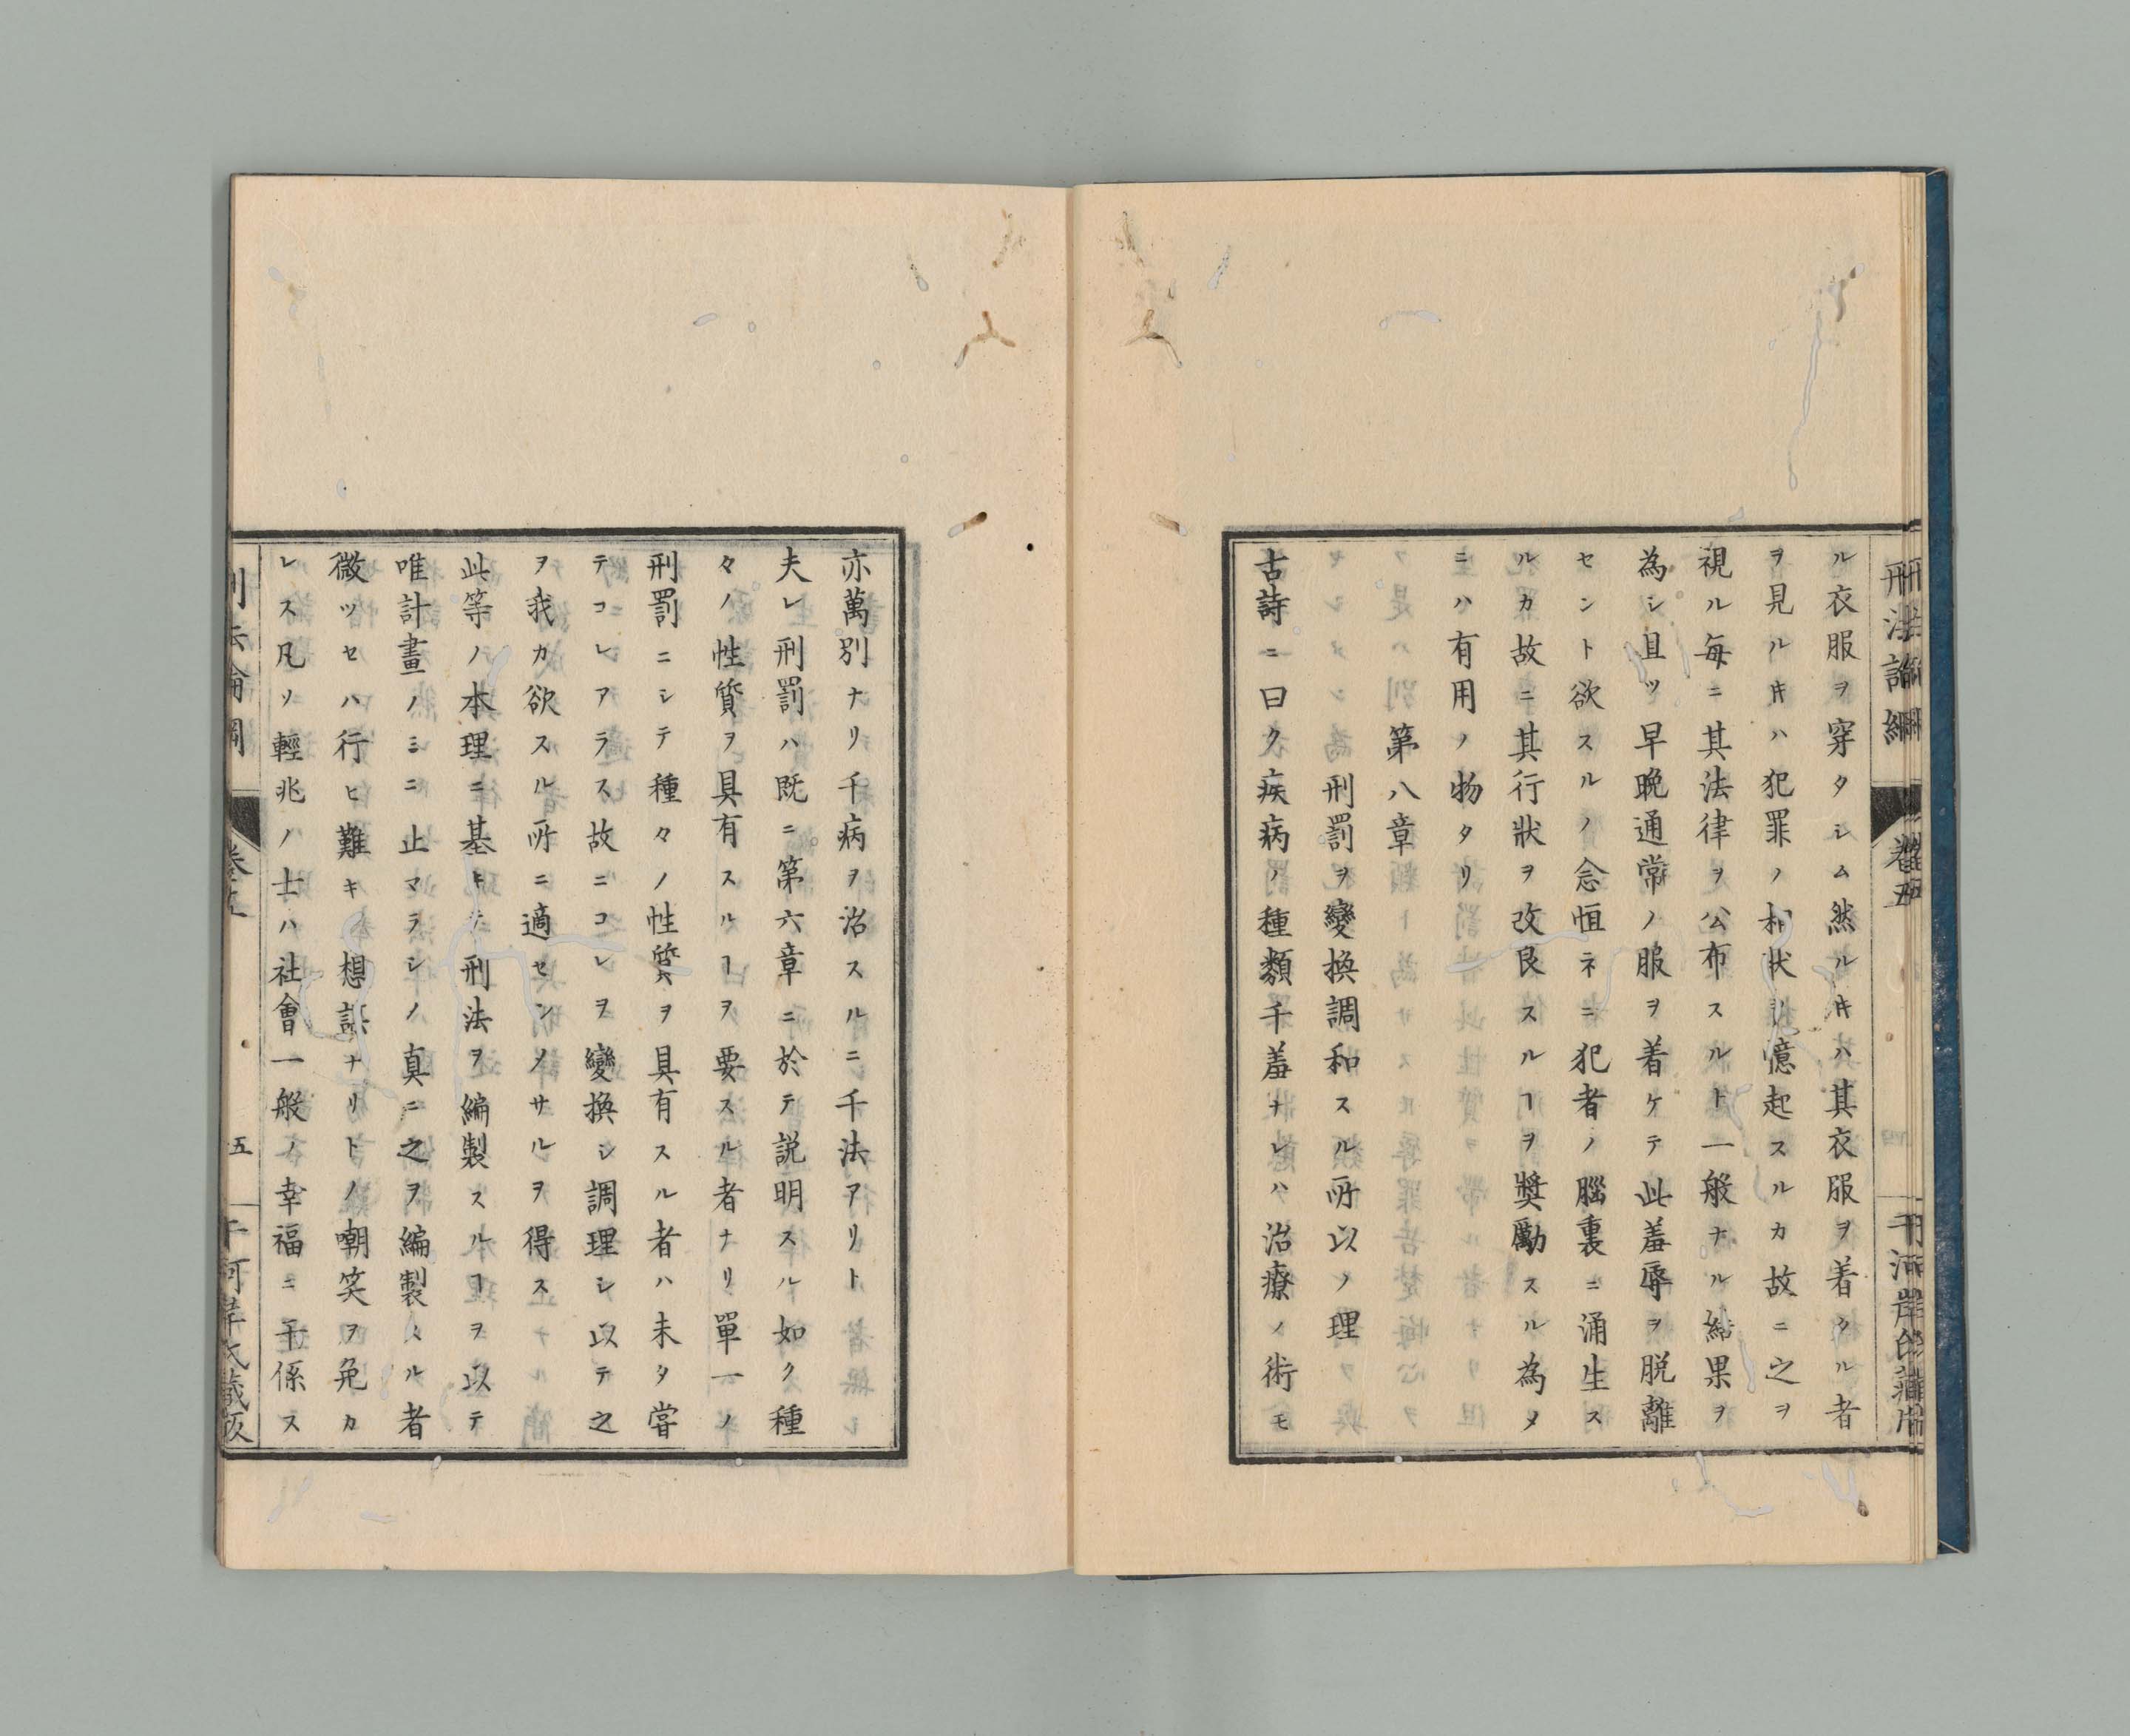 刑法論綱
卷五
ル衣服ヲ穿タシム然ルキハ其衣服ヲ着クル者
ヲ見ルキハ犯罪ノ相状ヲ憶起スルカ故ニ之ヲ
視ル毎ニ其法律ヲ公布スルト一般ナル結果ヲ
為シ且ツ早晩通常ノ服ヲ着ケテ此羞辱ヲ脱離
セント欲スルノ念恒ネニ犯者ノ腦裏ニ涌生ス
ルカ故ニ其行狀ヲ改良スルヿヲ奬勵スル為メ
ニハ有用ノ物タリ
第八章
刑罰ヲ變換調和スル所以ノ理
古詩ニ曰ク疾病ノ種類千差ナレハ治療ノ術モ
亦萬別ナリ千病ヲ治スルニ千法アリト
夫レ刑罰ハ既ニ第六章ニ於テ説明スル如ク種
々ノ性質ヲ具有スルヿヲ要スル者ナリ單一ノ
刑罰ニシテ種々ノ性質ヲ具有スル者ハ未タ甞
テコレアラス故ニコレヲ變換シ調理シ以テ之
ヲ我カ欲スル所ニ適センメサルヲ得ス
此等ノ本理ニ基キテ刑法ヲ編製スルヿヲ以テ
唯計畫ノミニ止マラシメ真ニ之ヲ編製スル者
微ツセハ行ヒ難キノ想談ナリトノ嘲笑ヲ免カ
レス凡ソ輕兆ノ士ハ社會一般ノ幸福ニ干係ス
刑法論綱
卷五
五
千河岸氏藏版